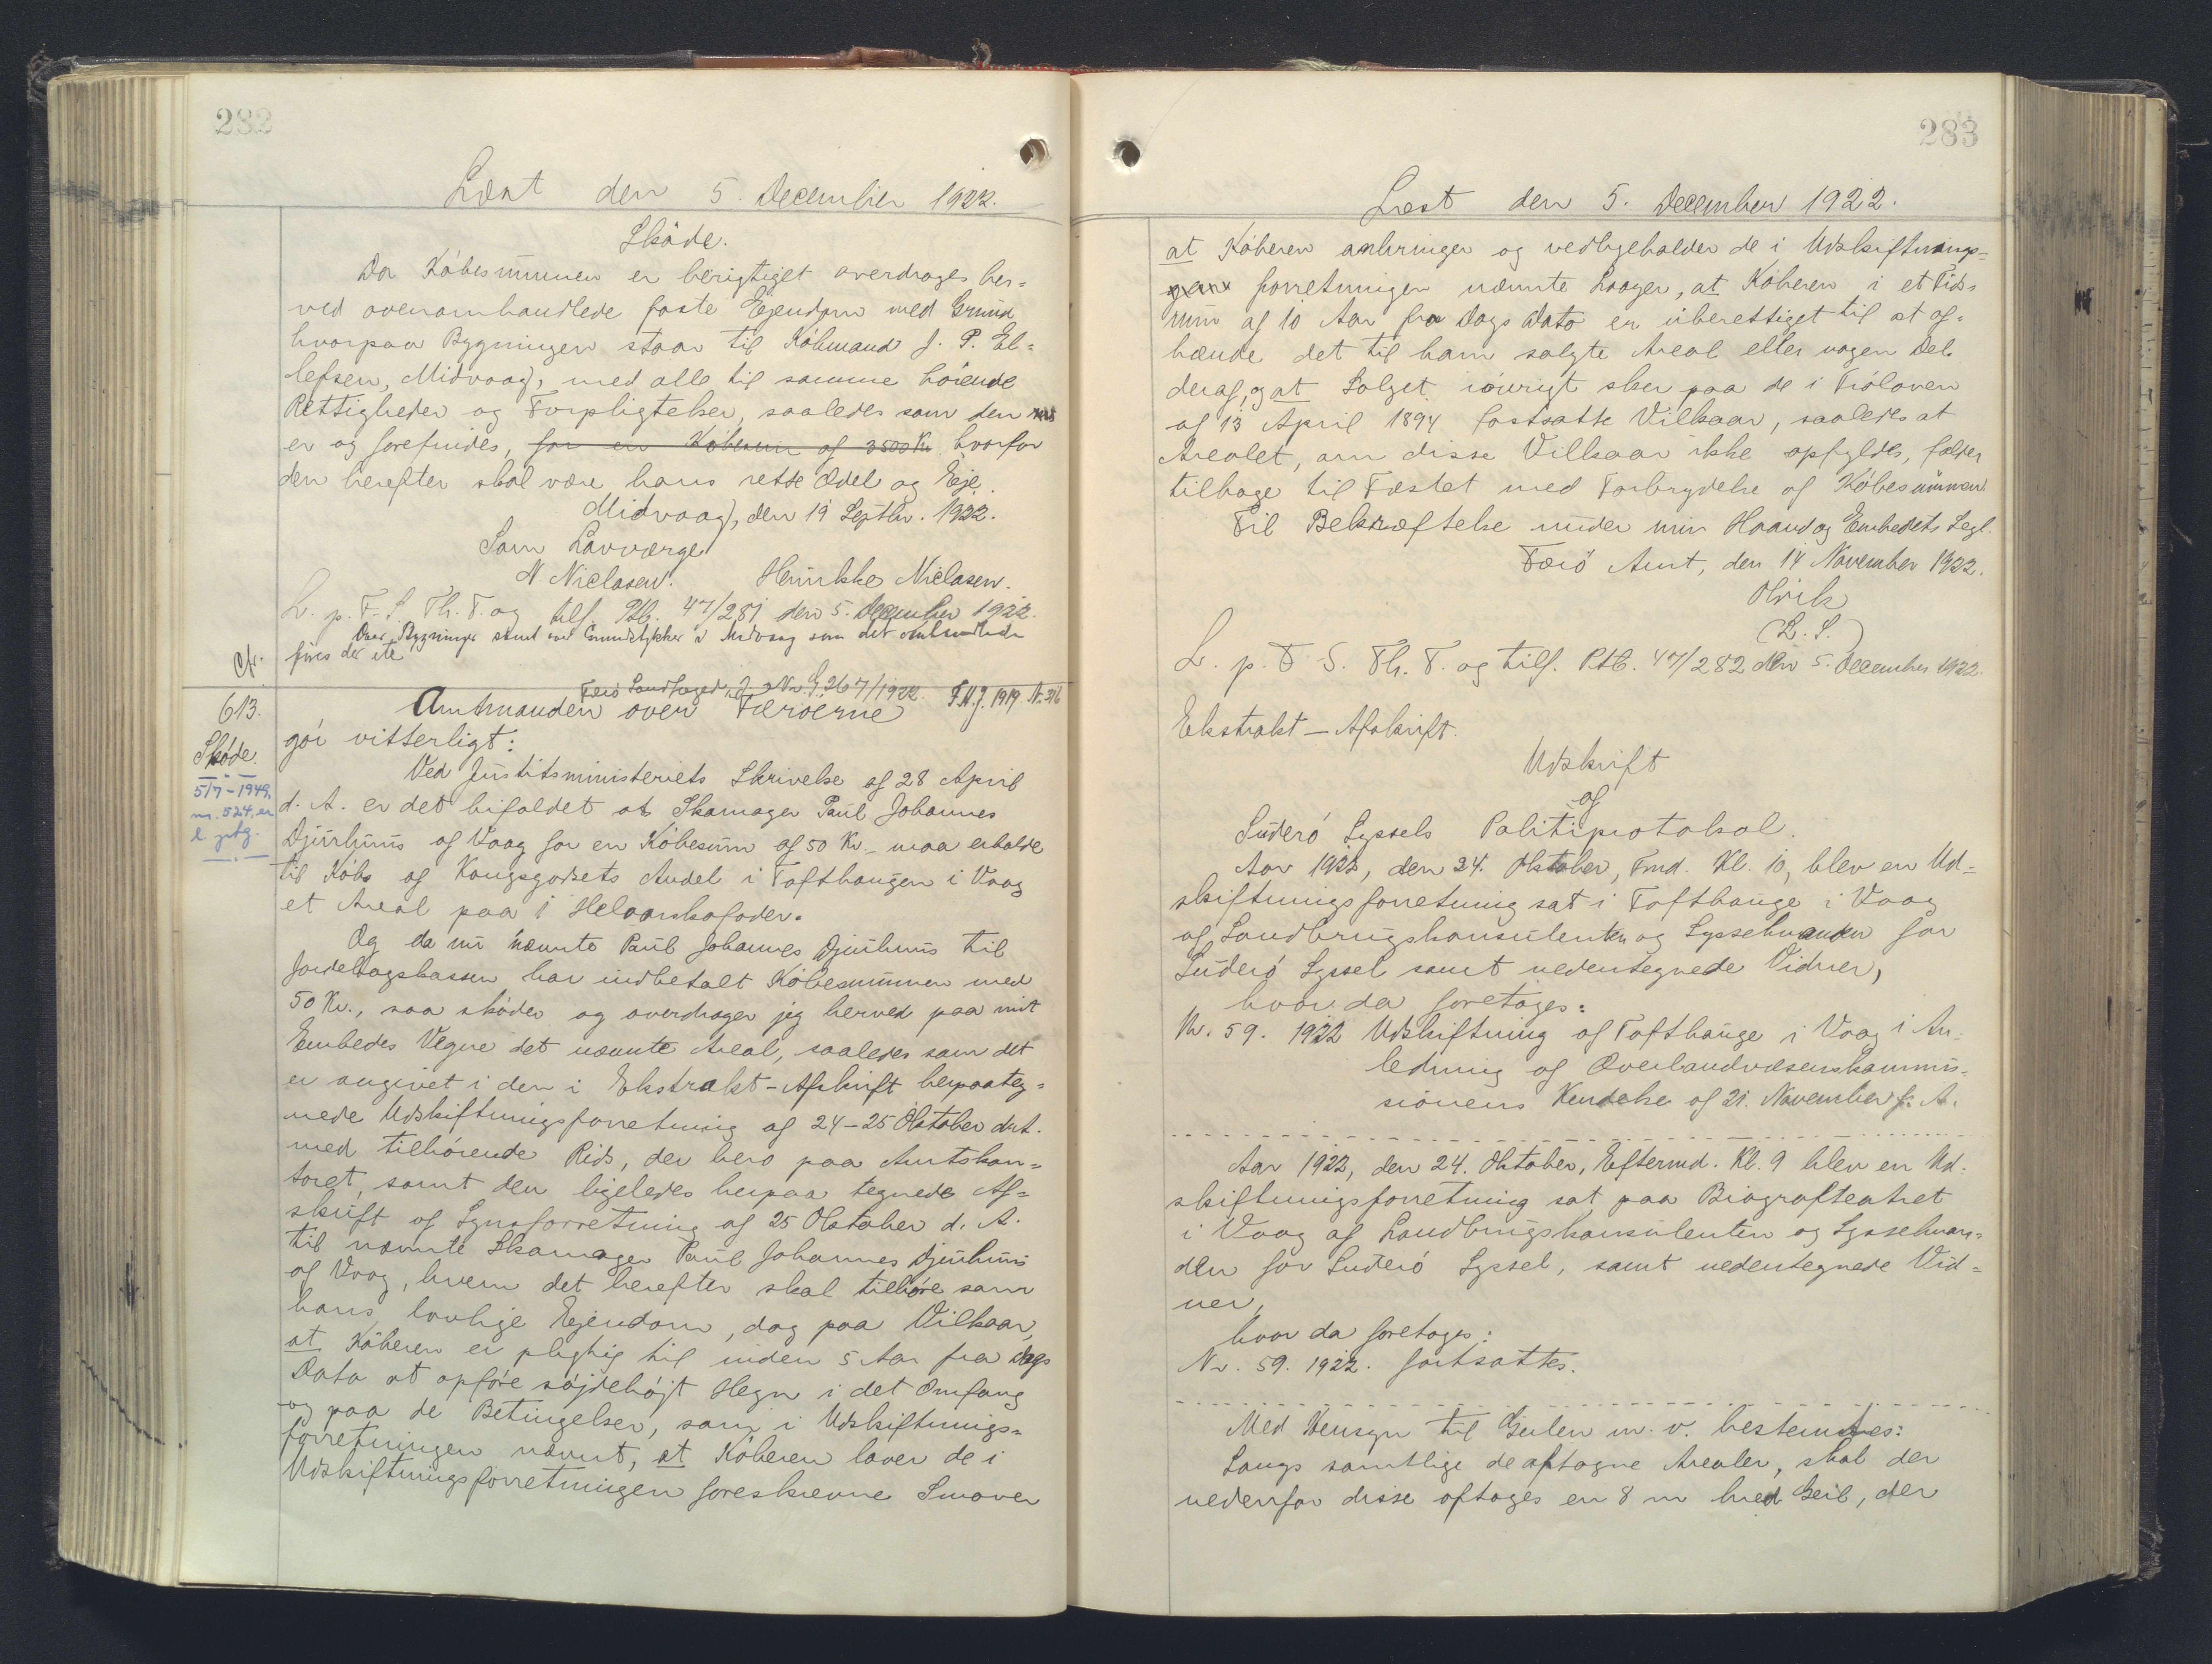 282
Læst den 5. December 1922.
Skøde.
Da Købesummen er berigtiget overdrages her=
ved ovenomhandlede faste Ejendom med Grund
hvorpaa Bygningen staar til Købmand J. P. El=
lefsen, Midvaag, med alle til samme hørende
Rettigheder og Forpligtelser, saaledes som den
er og forefindes, for en Købesum af 2500 Kr. hvorfor
den herefter skal være hans rette Ædel og Eje.
Midvaag, den 19 Septbr. 1922.
Som Lavværge
N Niclasen. Henrikke Niclasen.
L. p. F. S. Th. T. og tilf. Ptb. 47/281 den 5. December 1922.
Bygninger samt Midvaag som det omhandlede
føres der ikke
Cfr.
Færø Landfoged, J. Nr. G. 267/1922. F. A. J. 1919 Nr. 316
613. Amtmanden over Færøerne
Skøde. gør vitterligt:
5/7-1949,
nr. 524, er
l ptg.
Ved Justitsministeriets Skrivelse af 28 April
d. A. er det bifaldet at Skomager Paul Johannes
Djurhuus af Vaag for en Købesum af 50 Kr. maa erholde
til Købs af Kongsgodsets Andel i Tofthaugen i Vaag
et Areal paa 1 Helaarskofoder.
Og da nu nævnte Paul Johannes Djurhuus til
Jordebogskassen har indbetalt Købesummen med
50 Kr., saa skøder og overdrager jeg herved paa mit
Embedes Vegne det nævnte Areal, saaledes som det
er angivet i den i Ekstrakt-Afskrift herpaateg=
nede Udskiftningsforretning af 24-25 Oktober d. A.
med tilhørende Rids, der bero paa Amtskon=
toret, samt den ligeledes herpaa tegnede Af=
skrift af Synsforretning af 25 Oktober d. A.
til nævnte Skomager Paul Johannes Djurhuus
af Vaag, hvem det herefter skal tilhøre som
hans lovlige Ejendom, dog paa Vilkaar,
at Køberen er pligtig til inden 5 Aar fra Dags
Dato at opføre søjdehøjt Hegn i det Omfang
og paa de Betingelser, som i Udskiftnings=
forretningen nævnt, at Køberen laver de i
Udskiftningsforretningen foreskrevne Smover
283
Læst den 5. December 1922.
at Køberen anbringer og vedligeholder de i Udskiftnings=
forretningen nævnte Laager, at Køberen i et Tids=
rum af 10 Aar fra Dags Dato er uberettiget til at af=
hænde det til ham solgte Areal eller nogen Del
deraf, og at Salget iøvrigt sker paa de i Frøloven
af 13 April 1894 fastsatte Vilkaar, saaledes at
Arealet, om disse Vilkaar ikke opfyldes, falder
tilbage til Fæstet med Forbrydelse af Købesummen.
Til Bekræftelse under min Haand og Embedets Segl.
Færø Amt, den 14 November 1922.
Olrik
(L. S.)
L. p. F. S. Th. T. og tilf. Ptb. 47/282 den 5. December 1922.
Ekstrakt-Afskrift.
Udskrift
af
Suderø Syssels Politiprotokol.
Aar 1922, den 24. Oktober, Fmd. Kl. 10, blev en Ud=
skiftningsforretning sat i Tofthauge i Vaag
af Landbrugskonsulenten og Sysselmanden for
Suderø Syssel samt nedentegnede Vidner,
hvor da foretoges:
Nr. 59. 1922 Udskiftning af Tofthauge i Vaag i An=
ledning af Overlandvæsenskommis=
sionens Kendelse af 21. November f. A.
Aar 1922, den 24. Oktober, Eftermd. Kl. 9 blev en Ud=
skiftningsforretning sat paa Biografteatret
i Vaag af Landbrugskonsulenten og Sysselman=
den for Suderø Syssel, samt nedentegnede Vid=
ner,
hvor da foretoges:
Nr. 59. 1922. fortsattes.
Med Hensyn til Geilen m. v. bestemtes:
Langs samtlige de aftagne Arealer, skal der
nedenfor disse aftages en 8 m bred Geil, der